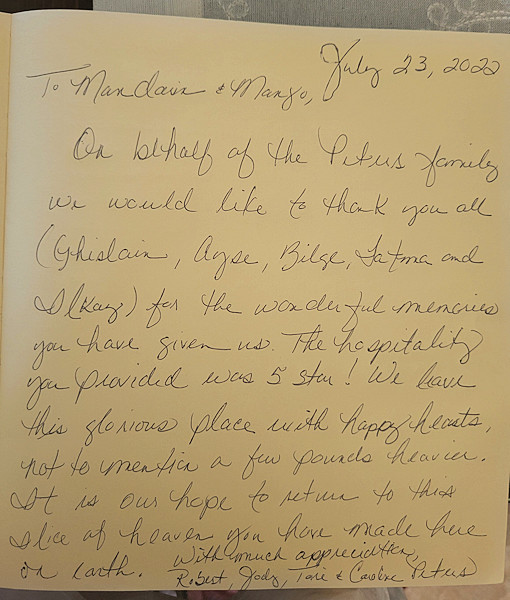 July 23, 2022
To Mandarin & Mango,
On behalf of the Peters family
we would like to thank you all
(Ghislain, Ayse, Bilge, Fatma and
) for the wonderful memories
you have given us. The hospitality
you provided was 5 star! We leave
this glorious place with happy hearts,
not to mention a few pounds heavier.
It is our hope to return to this
slice of heaven you have made here
on earth. With much appreciation,
Robert, Jody, Torie & Caroline Peters